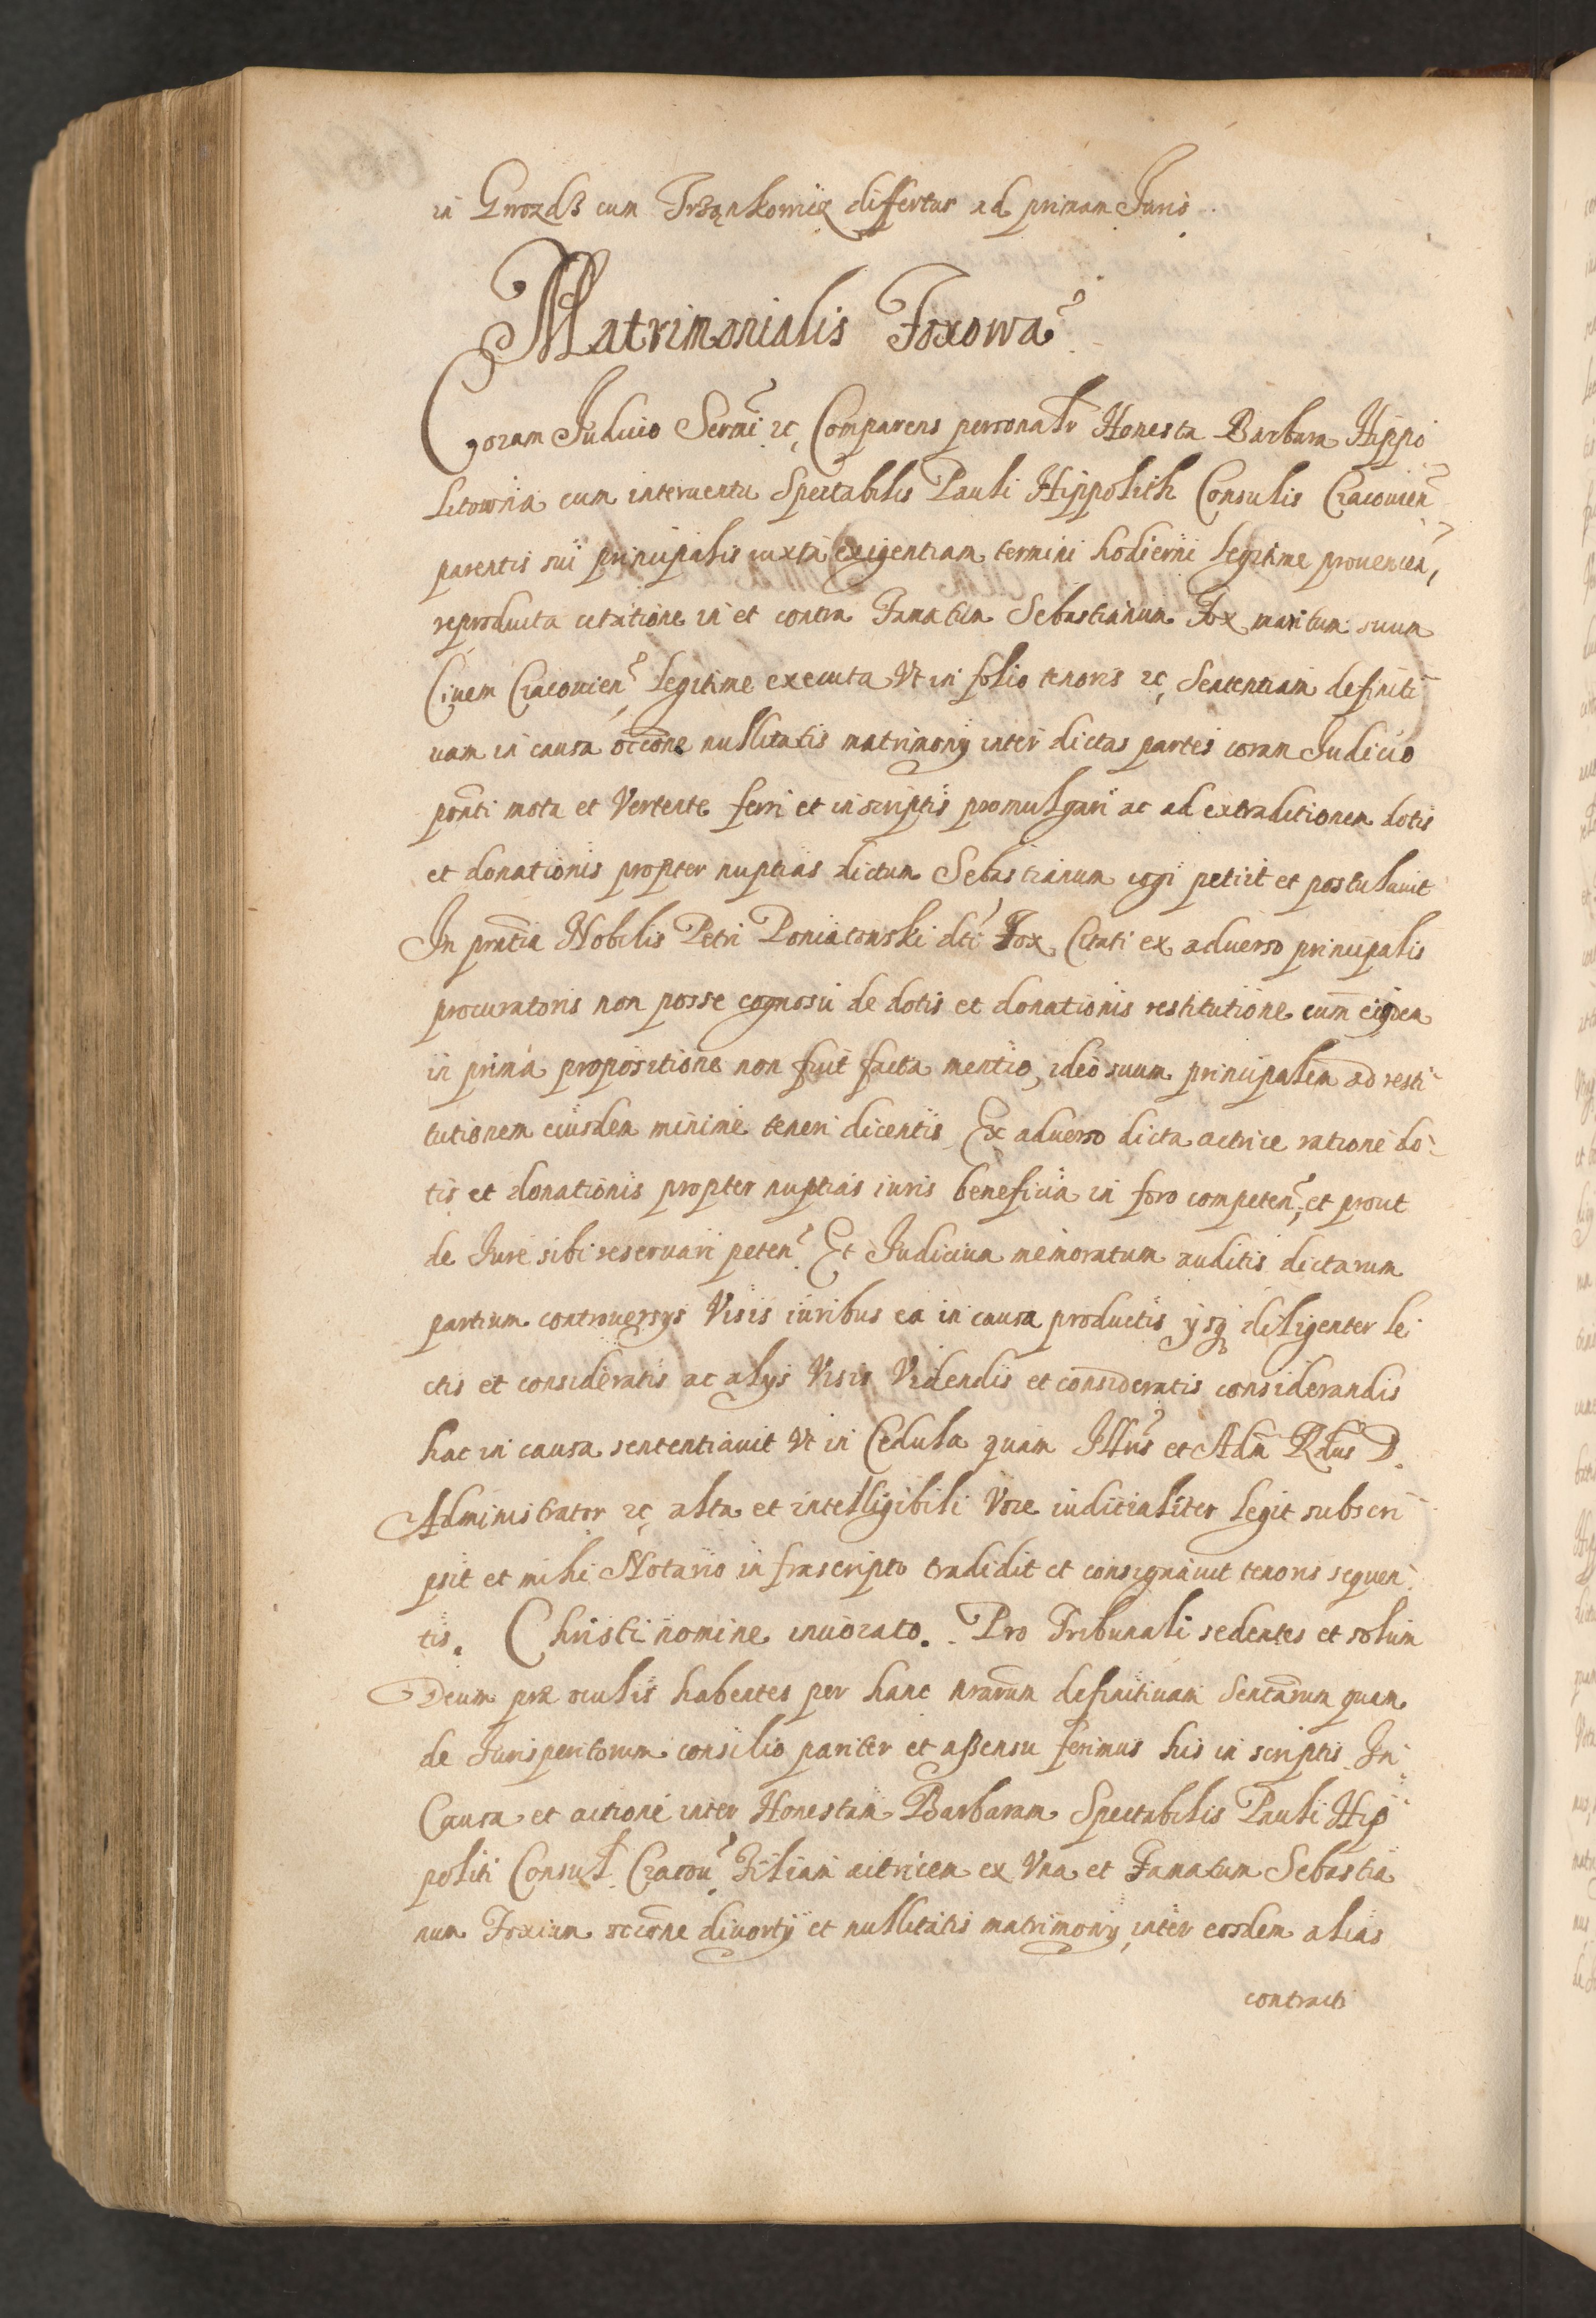 in Gwozdz cum Trząnkowicz differtur ad primam Juris.
Matrimonialis Foxowa
Coram Judicio Sermi etc, Comparens personalr Honesta Barbara Hippo
litowna cum interuentu Spectabilis Pauli Hippolith Consulis Cracouien
parentis sui principalis iuxta exigentiam termini hodierni legitime prouenien,
reproducta citatione in et contra Famatum Sebastianum Fox maritum suum
Ciuem Cracouien legitime executa Vt in folio tenoris etc, Sententiam definiti
uam in causa occõne nullitatis matrimonij inter dictas partes coram Judicio
pñti mota et Vertente ferri et in scriptis promulgari ac ad extraditionem dotis
et donationis propter nuptias dictum Sebastianum cogi petijt et postulauit
In pñtia Nobilis Petri Poniatowski dti Fox Citati ex aduerso principalis
procuratoris non posse cognosci de dotis et donationis restitutione cum eisdem
in prima propositione non fuit facta mentio, ideo suum principalem ad resti
tutionem eiusdem minime teneri dicentis Ex aduerso dicta actrice ratione do
tis et donationis propter nuptias iuris beneficia in foro competen, et prout
de Jure sibi reseruari peten. Et Judicium memoratum auditis dictarum
partium controuersijs Visis iuribus ea in causa productis ijsq diligenter le
ctis et consideratis ac alijs Visis Videndis et consideratis considerandis
hac in causa sententiauit Vt in Cedula quam Illris et Adm Rdus D.
Administrator etc, alta et intelligibili Voce iudicialiter legit subscri
psit et mihi Notario infrascripto tradidit et consignauit tenoris sequen
tis. Christi nomine inuocato. Pro Tribunali sedentes et solum
Deum præ oculis habentes per hanc nram definitiuam Sentam quam
de Jurisperitorum consilio pariter et aßensu ferimus his in scriptis In
Causa et actione inter Honestam Barbaram Spectabilis Pauli Hip
politi Consul. Cracou. Filiam actricem ex Vna et Famatum Sebastia
num Foxium occõne diuortij et nullitatis matrimonij inter eosdem alias
contracti